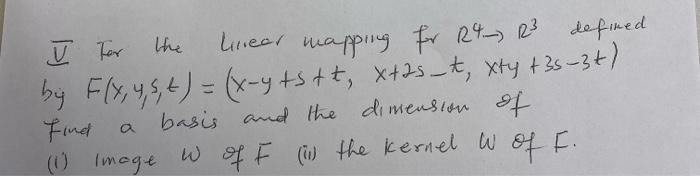 V For the linear mapping for R4→ R3 defined
by F(x,y,s,t) = (x-y+s+t, x+2s-t, x+y+3s-3t)
find a basis and the dimension of
(i) Image W of F (ii) the kernel W of F.